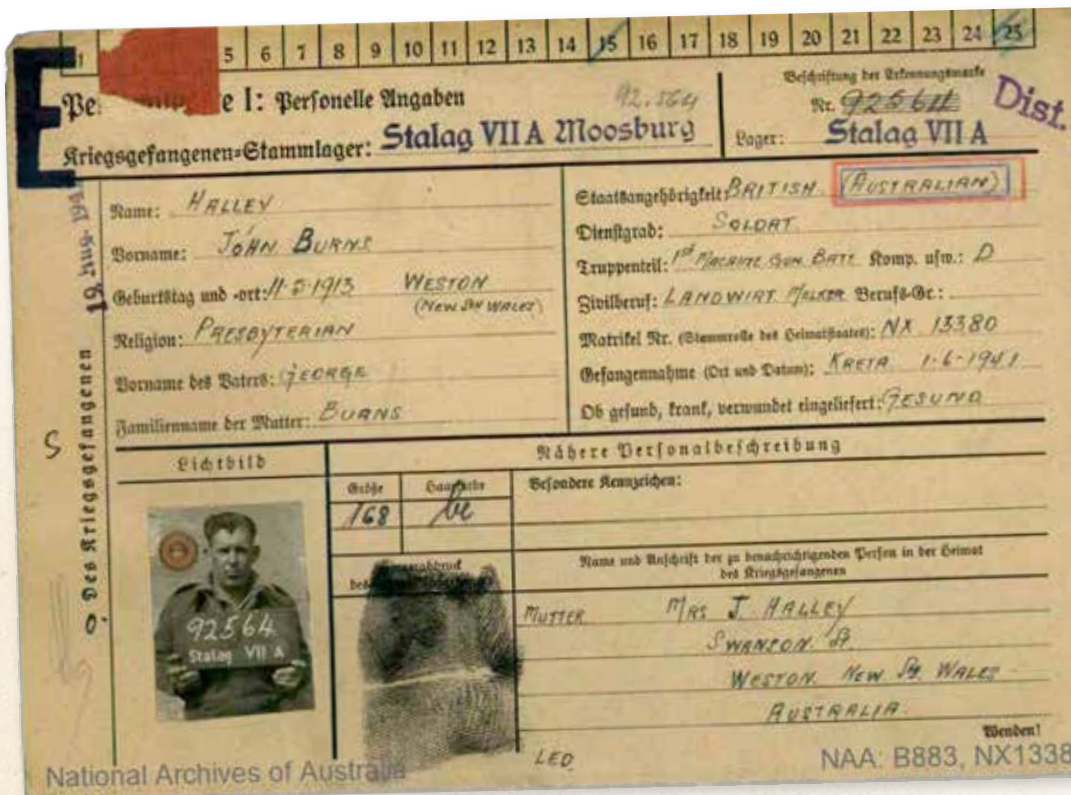 1 5 6 7 8 9 10 11 12 13 14 15 16 17 18 19 20 21 22 23 24 25
E
Pe e I: Personelle Angaben
92.564
Beschriftung der Erkennungsmarke
Nr. 92564
Dist.
Kriegsgefangenen=Stammlager: Stalag VII A Moosburg
Lager: Stalag VII A
Des Kriegsgefangenen
19. Aug. 194
S
Name: HALLEY
Vorname: JOHN BURNS
Geburtstag und -ort: 11-5-1913 WESTON
(NEW STH WALES)
Religion: PRESBYTERIAN
Vorname des Vaters: GEORGE
Familienname der Mutter: BURNS
Staatsangehörigkeit: BRITISH (AUSTRALIAN)
Dienstgrad: SOLDAT
Truppenteil: 1st MACHINE GUN BATT Komp. usw.: D
Zivilberuf: LANDWIRT MELKER Berufs-Gr.:
Matrikel Nr. (Stammrolle des Heimatstaates): NX 13380
Gefangennahme (Ort und Datum): KRETA 1-6-1941
Ob gesund, krank, verwundet eingeliefert: GESUND
Lichtbild
Nähere Personalbeschreibung
Größe
Haarfarbe
Besondere Kennzeichen:
168
92564
Stalag VII A
Name und Anschrift der zu benachrichtigenden Person in der Heimat
des Kriegsgefangenen
MUTTER MRS J. HALLEY
SWANSON St.
WESTON. NEW Sth. WALES
AUSTRALIA.
Wenden!
LED
National Archives of Australia
NAA: B883, NX1338